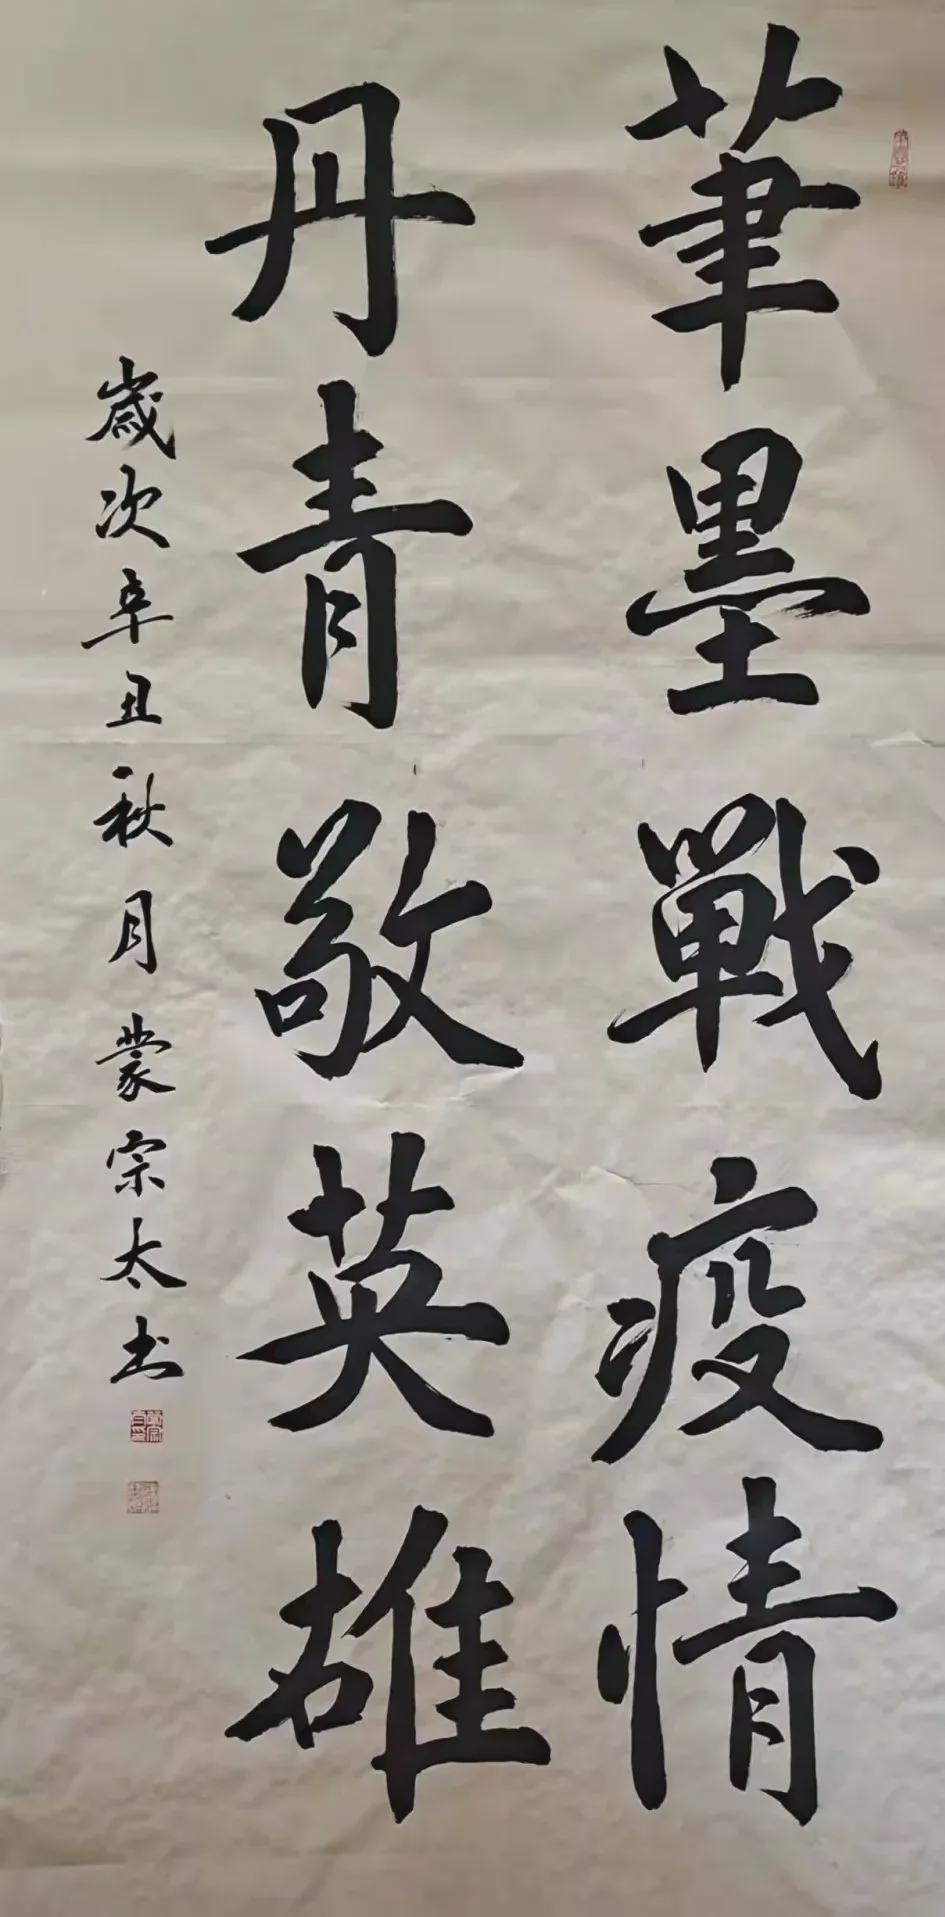 筆墨戰疫情
丹青敬英雄
歲次辛丑秋月蒙宗太书